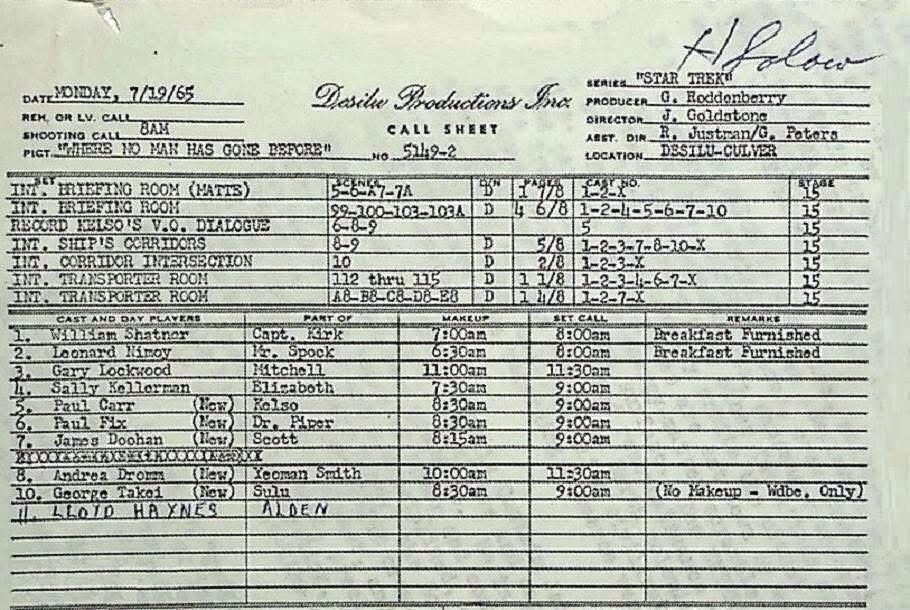 H Solow
DATE MONDAY, 7/19/65
REH. OR LV. CALL
SHOOTING CALL 8AM
PICT. "WHERE NO MAN HAS GONE BEFORE" NO 5149-2
Desilu Productions Inc.
CALL SHEET
SERIES "STAR TREK"
PRODUCER G. Roddenberry
DIRECTOR J. Goldstone
ASST. DIR R. Justman/G. Peters
LOCATION DESILU-CULVER
SET SCENES D/N PAGES CAST NO. STAGE
INT. BRIEFING ROOM (MATTE) 5-6-A7-7A D 1 7/8 1-2-X 15
INT. BRIEFING ROOM 99-100-103-103A D 4 6/8 1-2-4-5-6-7-10 15
RECORD KELSO'S V.O. DIALOGUE 6-8-9 5 15
INT. SHIP'S CORRIDORS 8-9 D 5/8 1-2-3-7-8-10-X 15
INT. CORRIDOR INTERSECTION 10 D 2/8 1-2-3-X 15
INT. TRANSPORTER ROOM 112 thru 115 D 1 1/8 1-2-3-4-6-7-X 15
INT. TRANSPORTER ROOM A8-B8-C8-D8-E8 D 1 4/8 1-2-7-X 15
CAST AND DAY PLAYERS PART OF MAKEUP SET CALL REMARKS
1. William Shatner Capt. Kirk 7:00am 8:00am Breakfast Furnished
2. Leonard Nimoy Mr. Spock 6:30am 8:00am Breakfast Furnished
3. Gary Lockwood Mitchell 11:00am 11:30am
4. Sally Kellerman Elizabeth 7:30am 9:00am
5. Paul Carr (New) Kelso 8:30am 9:00am
6. Paul Fix (New) Dr. Piper 8:30am 9:00am
7. James Doohan (New) Scott 8:15am 9:00am
8. Andrea Dromm (New) Yeoman Smith 10:00am 11:30am
10. George Takei (New) Sulu 8:30am 9:00am (No Makeup - Wdbe. Only)
11. LLOYD HAYNES ALDEN